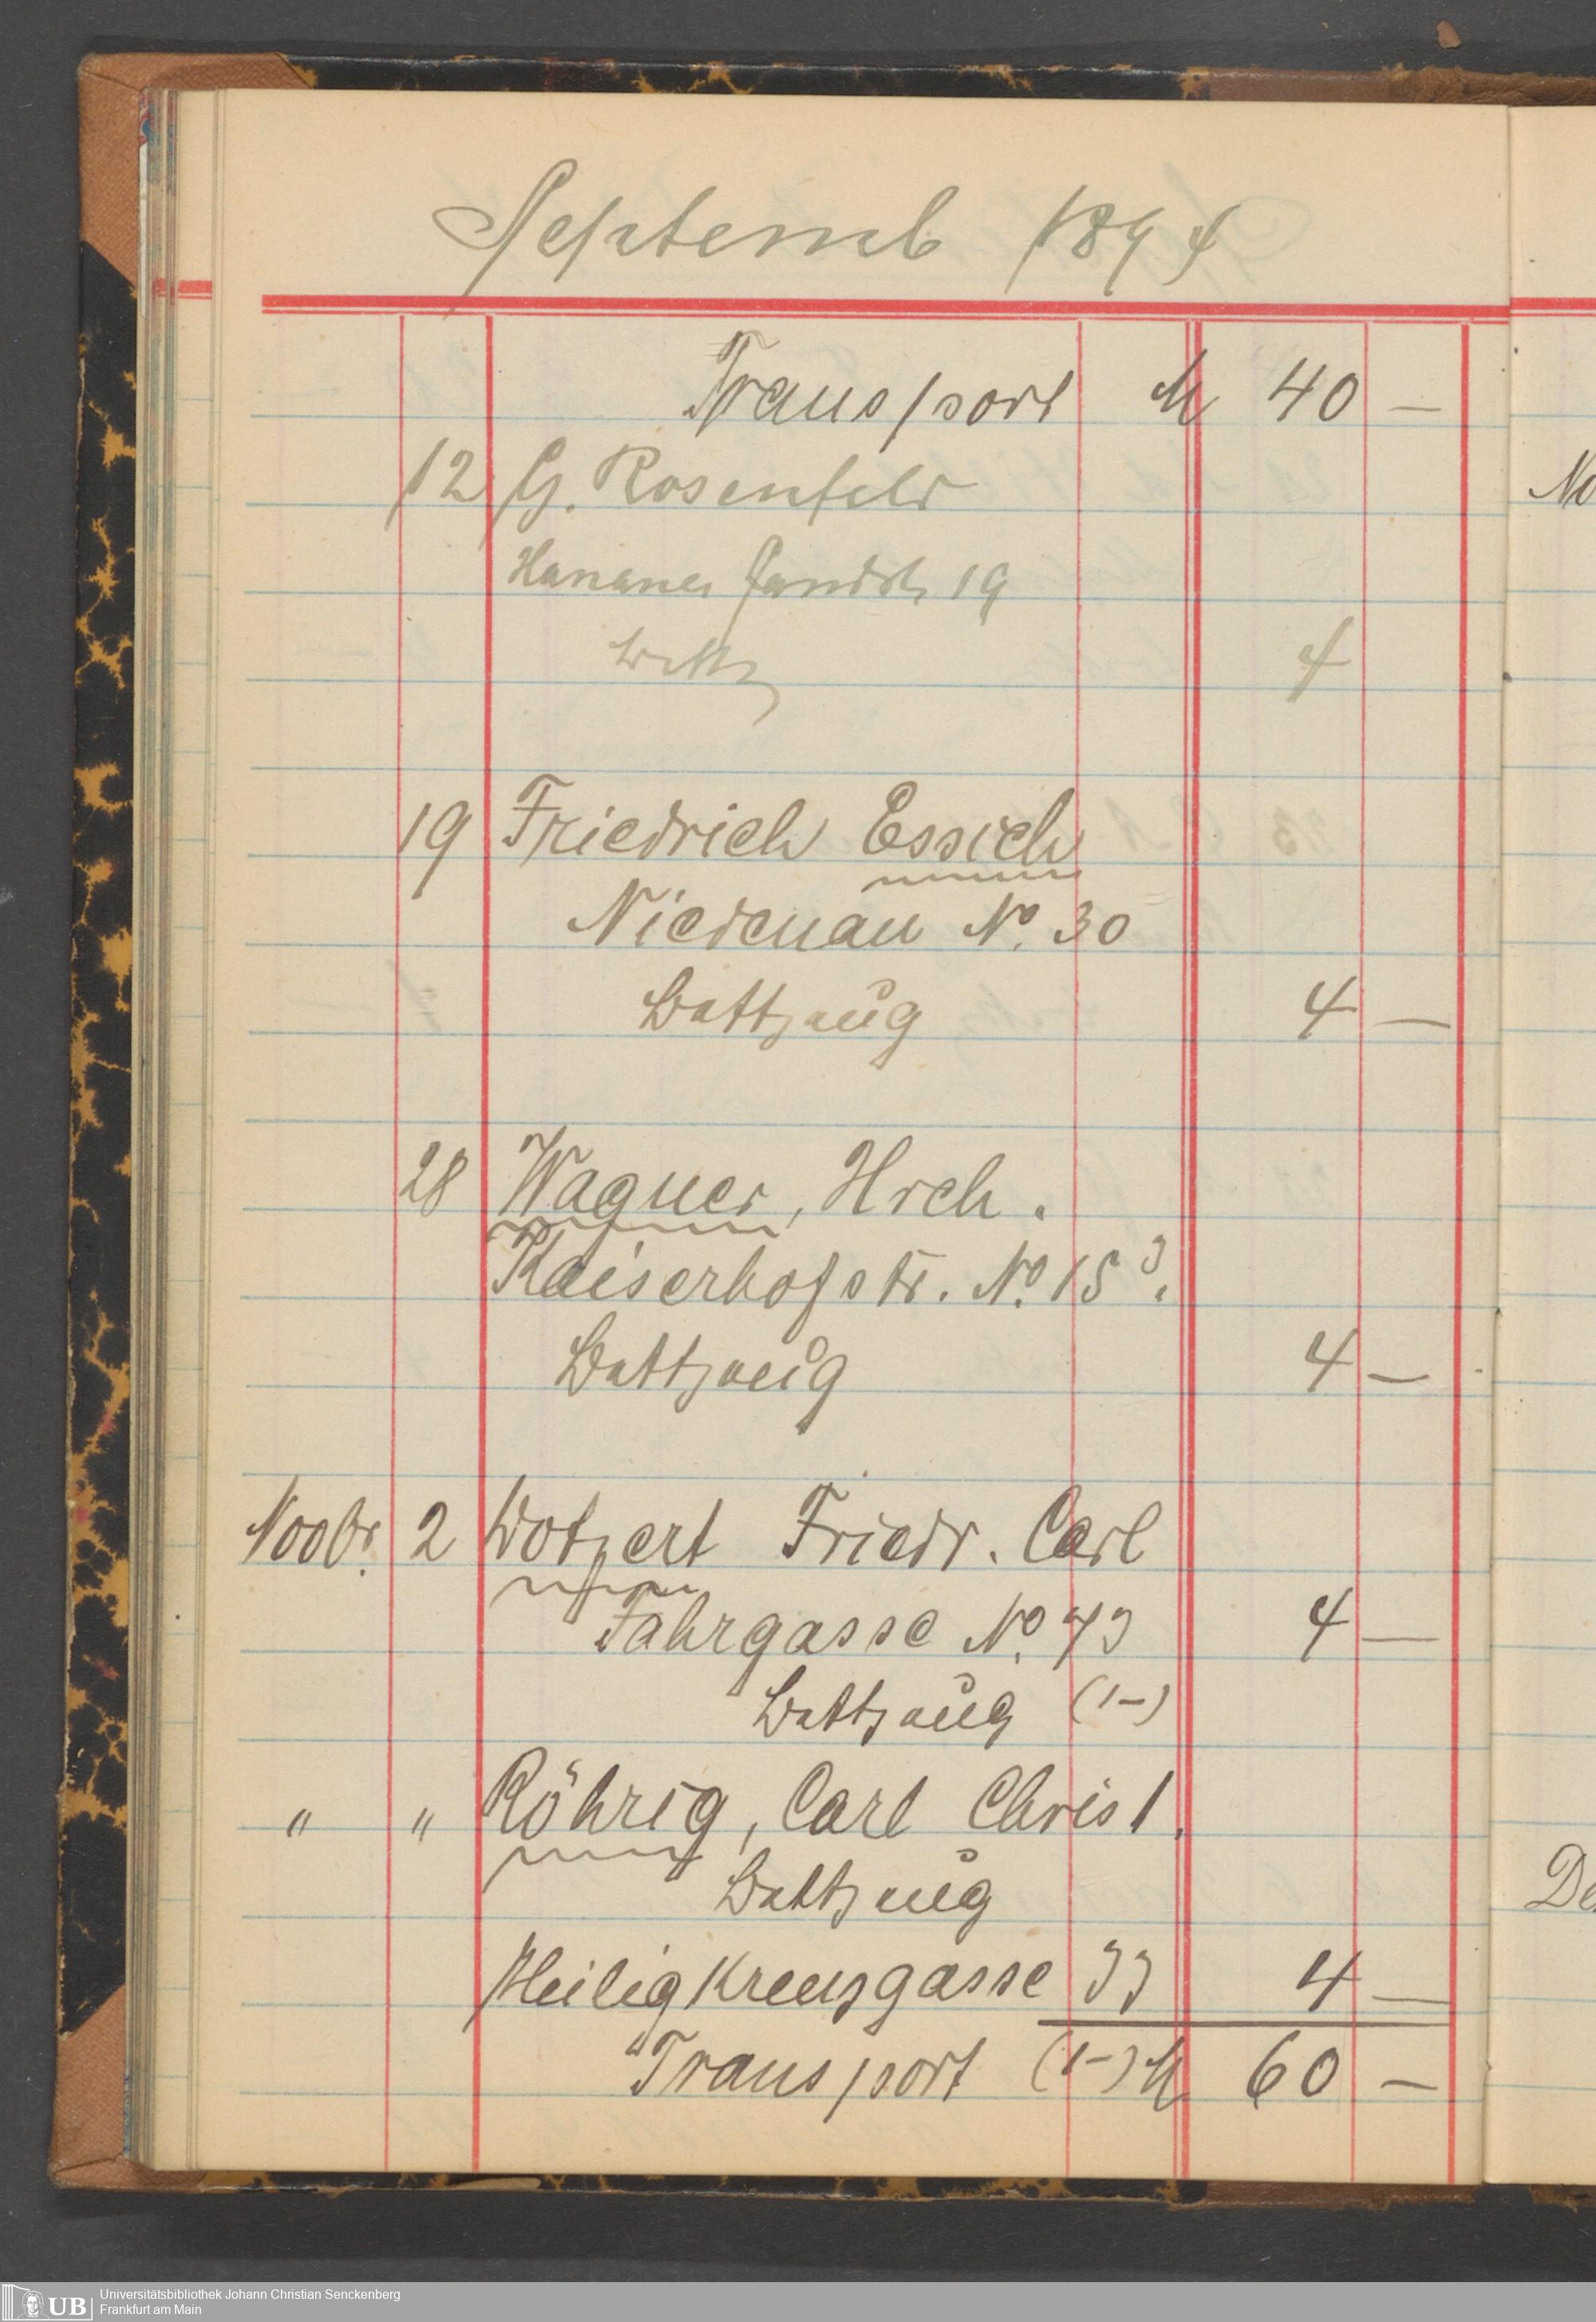 Septemb 1894
Transport M 40 —
12 G. Rosenfeld
Hanauer Landstr 19
4
19 Friedrich Essich
Niedenau No. 30
4 —
28 Wagner, Hrch.
Kaiserhofstr. No. 15 3.
4 —
Novbr. 2 Friedr. Carl
Fahrgasse No. 73 4 —
(1—)
" " Röhrig, Carl Christ.
Heiligkreuzgasse 33 4 —
Transport (1—) M 60 —
No
De
UB
Universitätsbibliothek Johann Christian Senckenberg
Frankfurt am Main